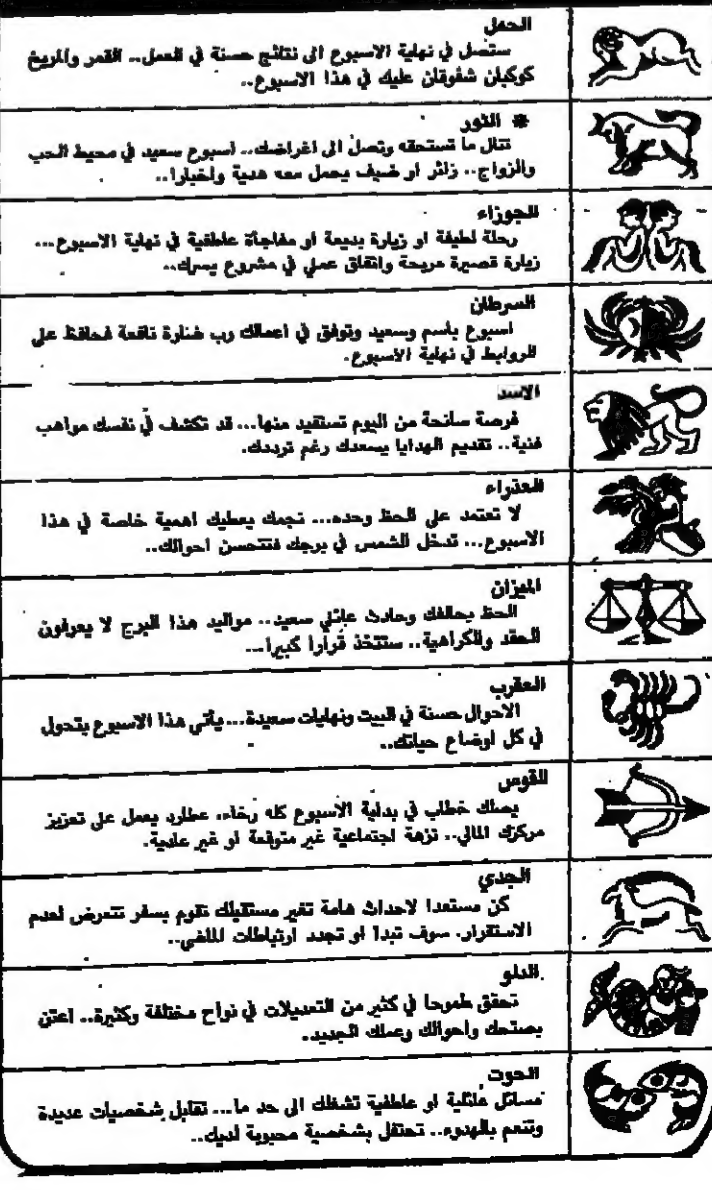 الحمل
ستصل في نهاية الاسبوع الى نتائج حسنة في العمل.. القمر والمريخ
كوكبان شفوقان عليك في هذا الاسبوع..
* الثور
تنال ما تستحقه وتصل الى اغراضك.. اسبوع سعيد في محيط الحب
والزواج.. زائر او ضيف يحمل معه هدية واخبارا..
الجوزاء
رحلة لطيفة او زيارة بديعة او مفاجأة عاطفية في نهاية الاسبوع...
زيارة قصيرة مريحة واتفاق عملي في مشروع يسرك..
السرطان
اسبوع باسم وسعيد وتوفق في اعمالك رب ضارة نافعة فحافظ على
الروابط في نهاية الاسبوع.
الاسد
فرصة سانحة من اليوم تستفيد منها... قد تكشف في نفسك مواهب
فنية.. تقديم الهدايا يسعدك رغم ترددك.
العذراء
لا تعتمد على الحظ وحده... نجمك يعطيك اهمية خاصة في هذا
الاسبوع... تدخل الشمس في برجك فتتحسن احوالك..
الميزان
الحظ يحالفك وحادث عائلي سعيد.. مواليد هذا البرج لا يعرفون
الحقد والكراهية.. ستتخذ قرارا كبيرا...
العقرب
الاحوال حسنة في البيت ونهايات سعيدة... يأتي هذا الاسبوع بتحول
في كل اوضاع حياتك..
القوس
يصلك خطاب في بداية الاسبوع كله رخاء، عطارد يعمل على تعزيز
مركزك المالي.. نزهة اجتماعية غير متوقعة او غير عادية.
الجدي
كن مستعدا لاحداث هامة تغير مستقبلك تقوم بسفر تتعرض لعدم
الاستقرار. سوف تبدا او تجدد ارتباطات الماضي..
الدلو
تحقق طموحا في كثير من التعديلات في نواح مختلفة وكثيرة.. اعتن
بصحتك واحوالك وعملك الجديد..
الحوت
مسائل عائلية او عاطفية تشغلك الى حد ما... تقابل شخصيات عديدة
وتنعم بالهدوء.. تحتفل بشخصية محبوبة لديك..